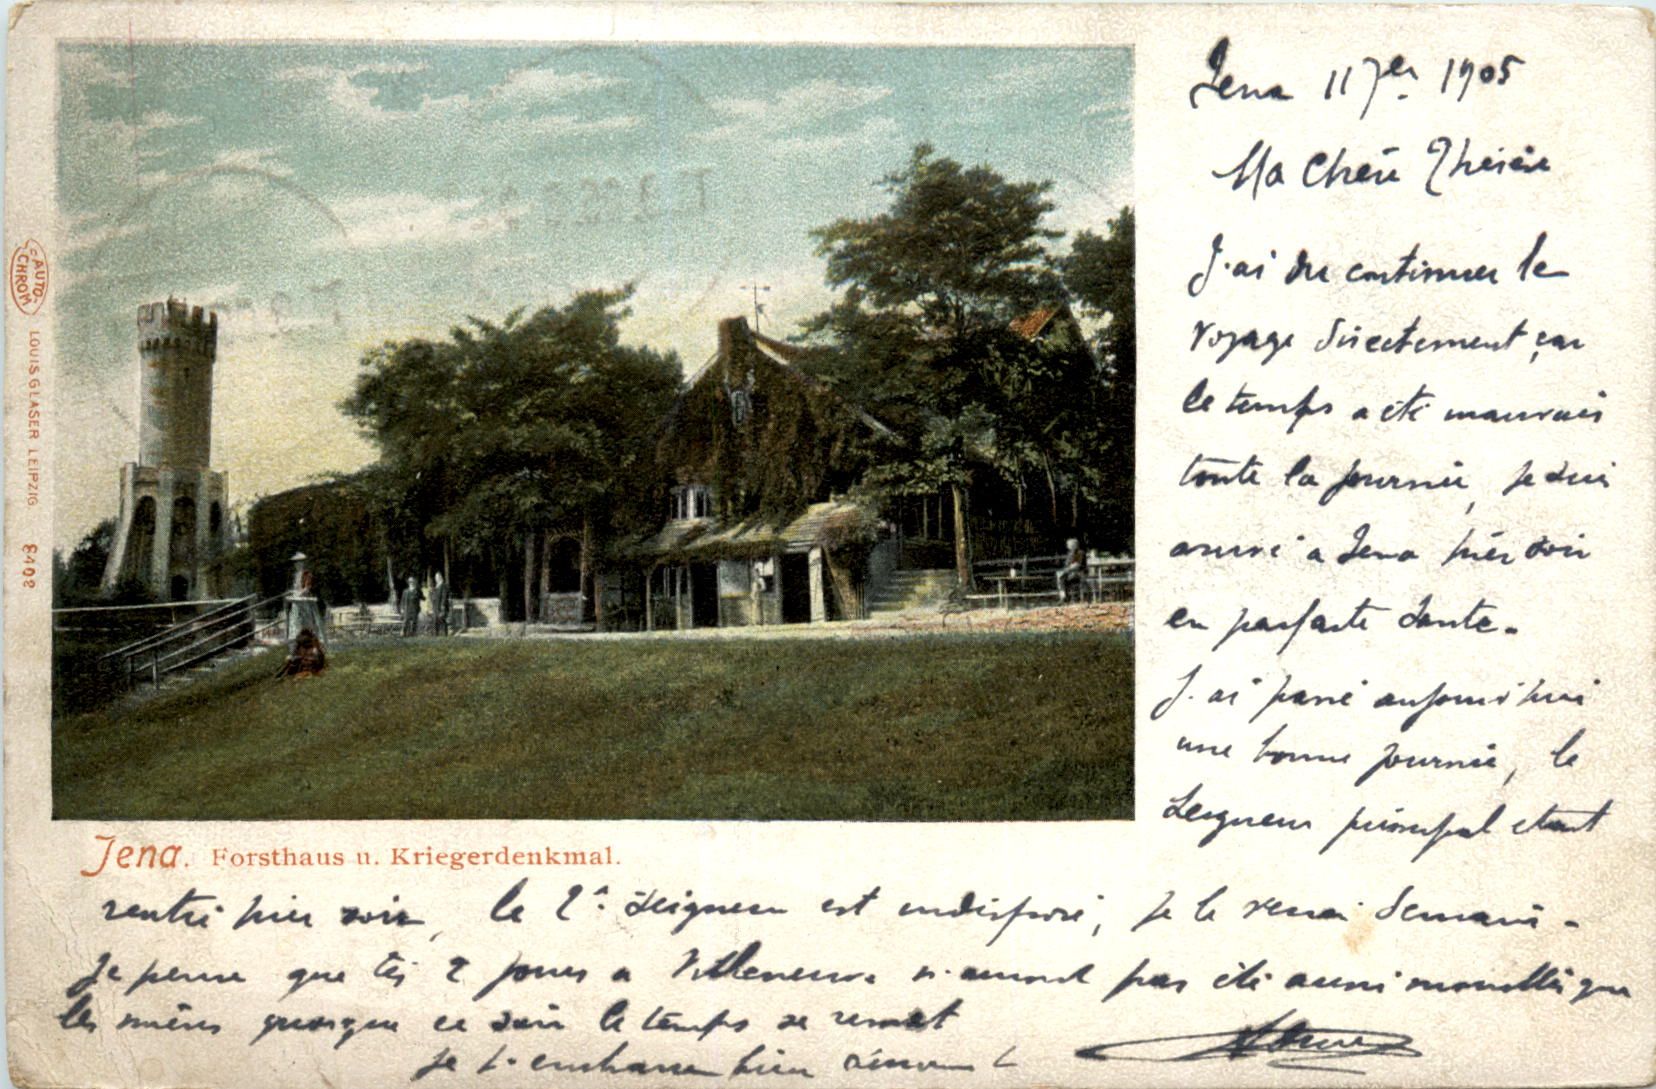 Jena 11 7er 1905
Ma Chère Thérèse
J'ai du continuer le
voyage directement car
le temps a été mauvais
toute la journée, je suis
arrivé a Jena hier soir
en parfaite santé.
J'ai passé aujourd'hui
une bonne journée, le
Seigneur principal étant
rentré hier soir, le 2e Seigneur est indisposé, je le verrai demain.
Je pense que tes 2 jours a Villeneuve n'auront pas été aussi mouillés que
les miens quoique ce soir le temps se remet
Je t'embrasse bien
AUTO-CHROM
LOUIS GLASER LEIPZIG
Jena. Forsthaus u. Kriegerdenkmal.